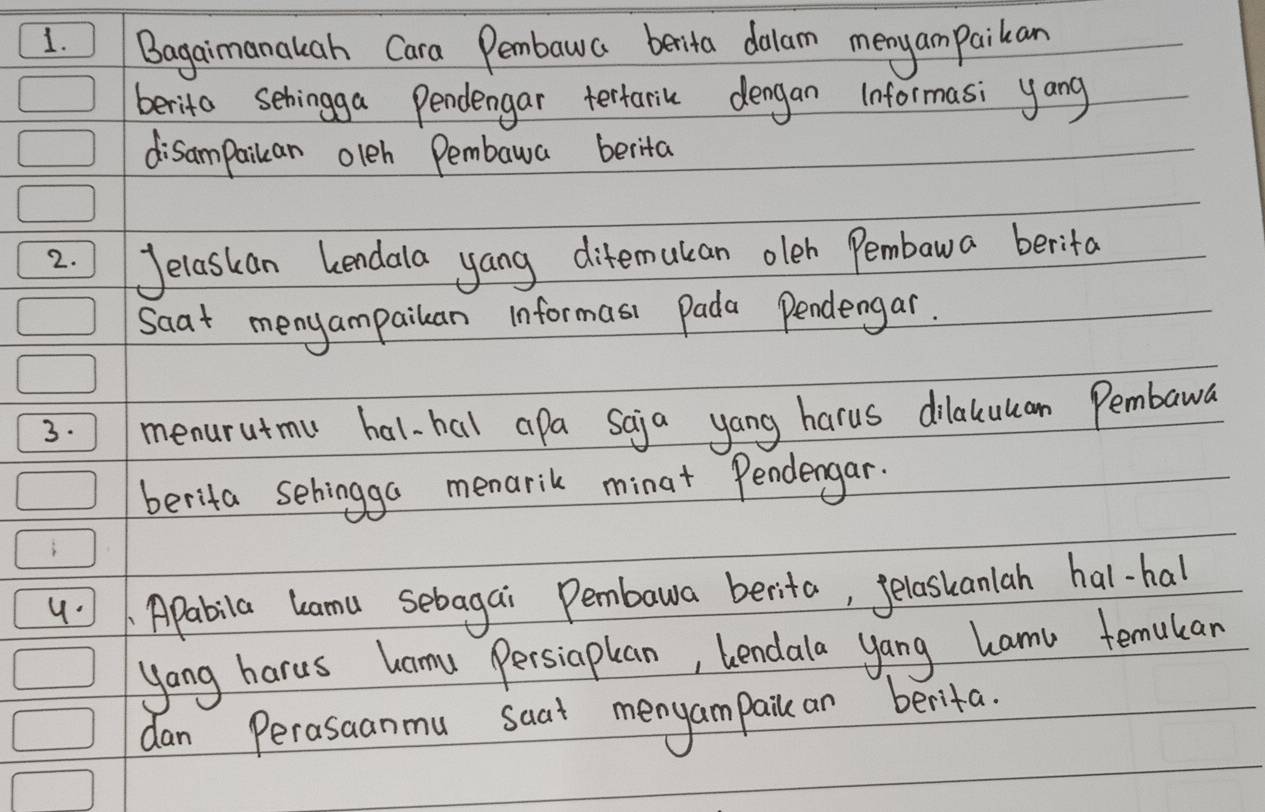 1. Bagaimanakah Cara Pembawa berita dalam menyampaikan
berita sehingga Pendengar tertarik dengan Informasi yang
disampaikan oleh Pembawa berita
2. Jelaskan kendala yang ditemukan oleh Pembawa berita
Saat menyampaikan informasi Pada Pendengar.
3. menurutmu hal-hal apa Saja yang harus dilakukan Pembawa
berita sehingga menarik minat Pendengar.
4. Apabila kamu sebagai Pembawa berita, jelaskanlah hal-hal
yang harus kamu Persiapkan, kendala yang kamu temukan
dan Perasaanmu saat menyampaikan berita.